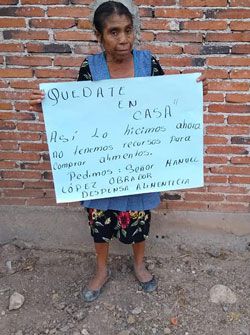 QUEDATE
EN
CASA"
Así Lo hicimos ahora
no tenemos recursos para
comprar alimentos.
Pedimos: Señor MANUEL
LÓPEZ OBRADOR
DESPENSA ALIMENTICIA